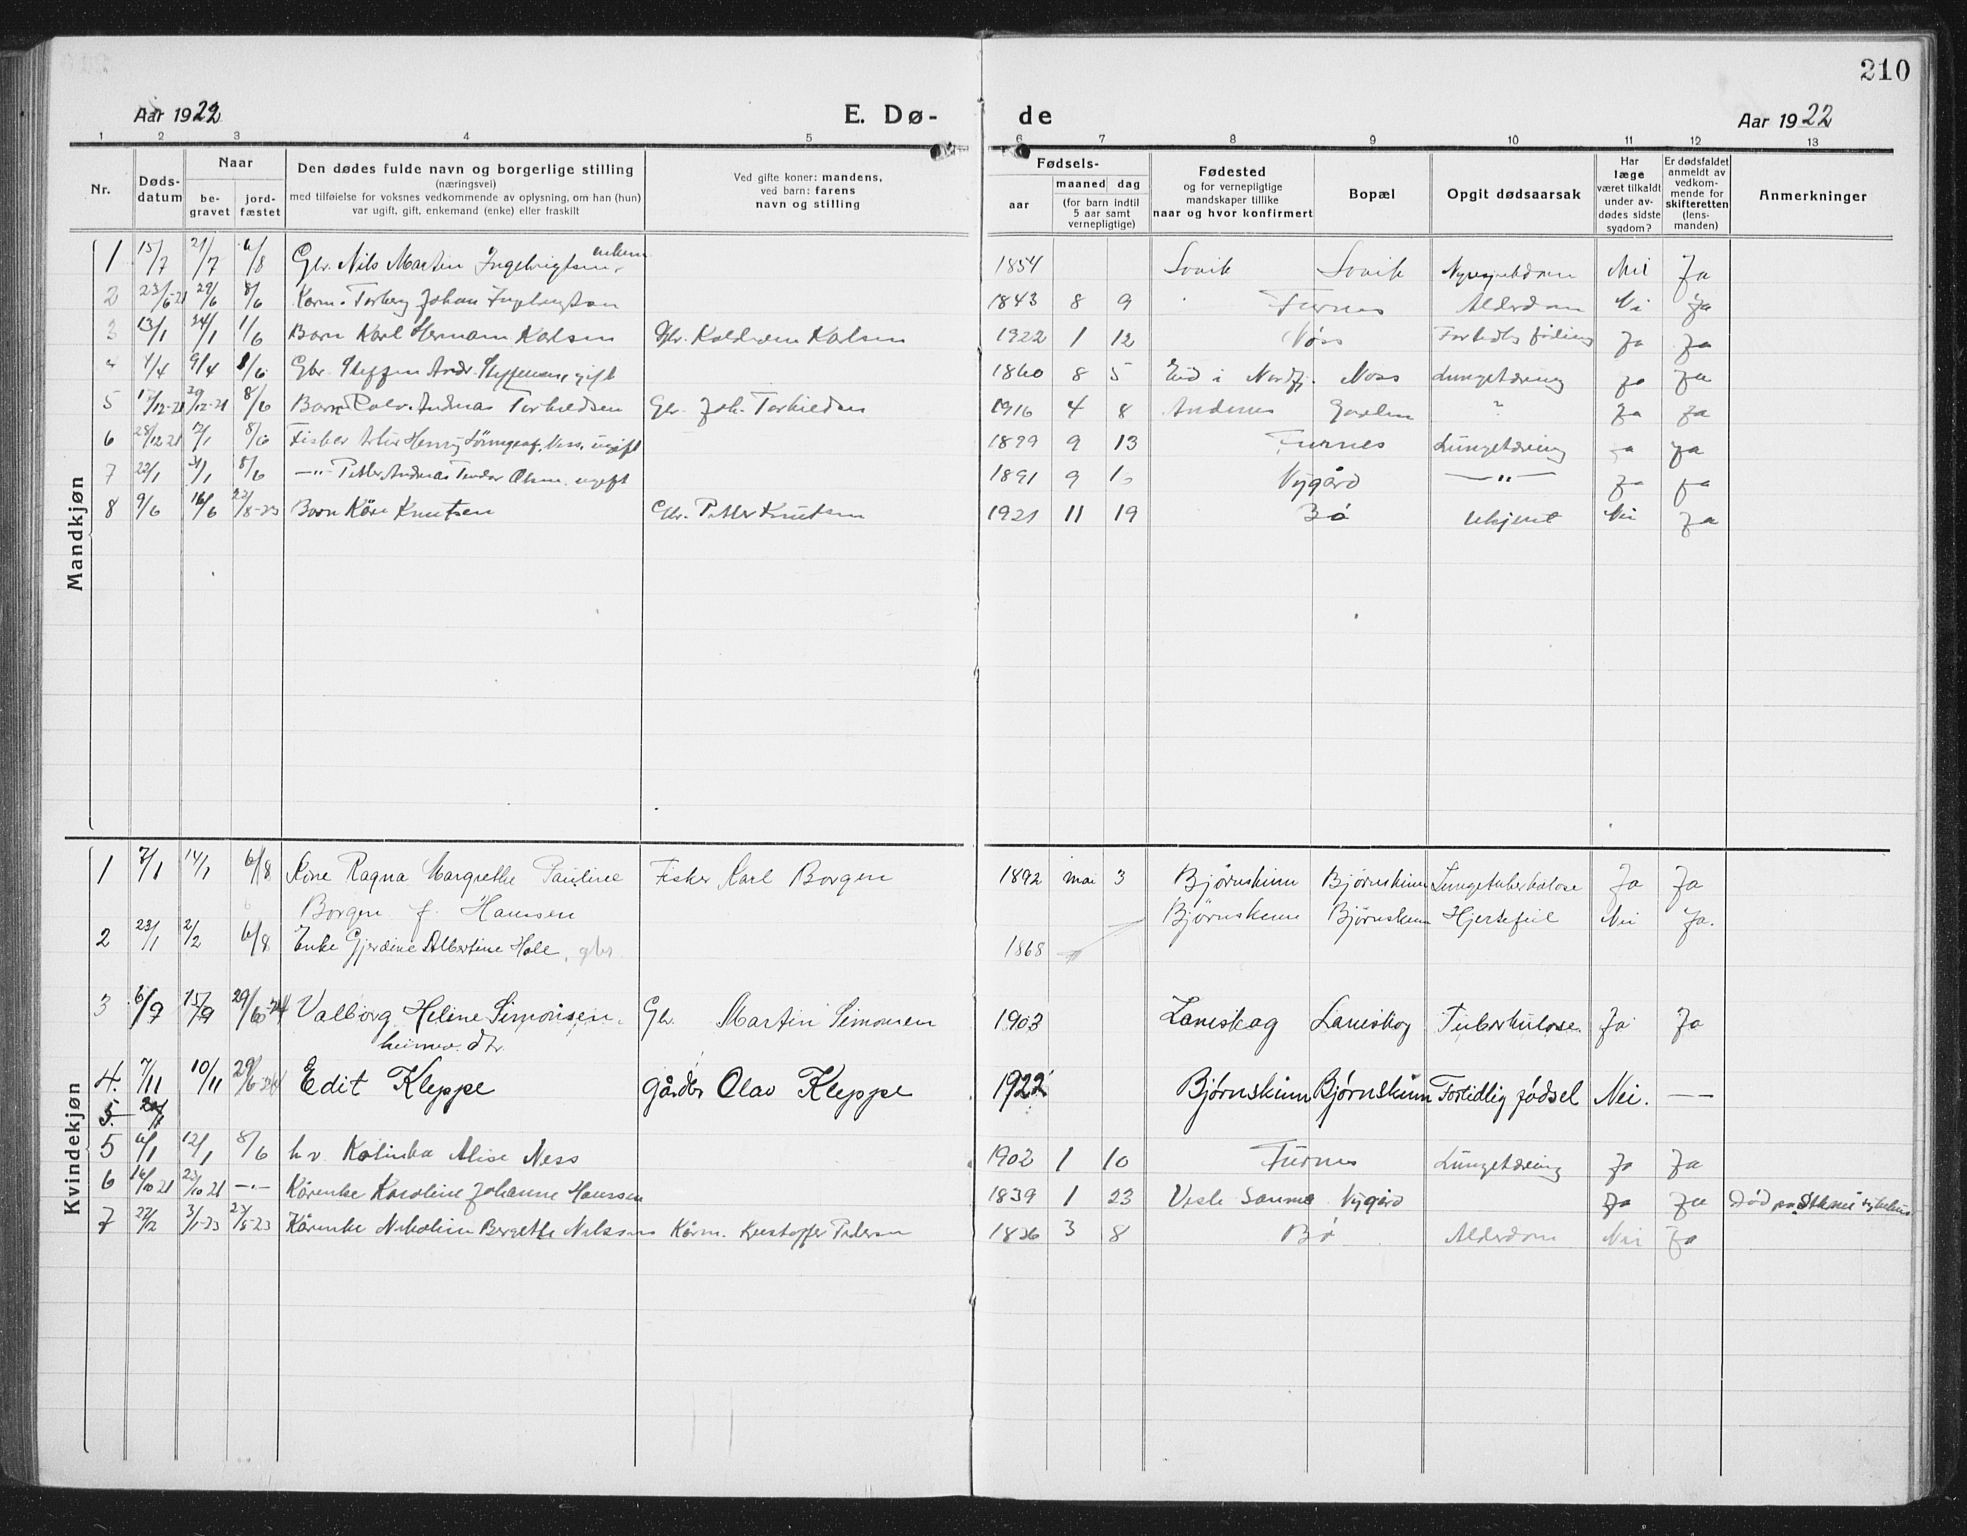 210
Aar 1922 E. Dø- de Aar 1922
1 2 3 4 5 6 7 8 9 10 11 12 13
Nr. Dødsdatum Naar begravet jordfæstet
Den dødes fulde navn og borgerlige stilling
(næringsvei)
med tilføielse for voksnes vedkommende av oplysning, om han (hun)
var ugift, gift, enkemand (enke) eller fraskilt
Ved gifte koner: mandens,
ved barn: farens
navn og stilling
Fødsels-
aar maaned dag
(for barn indtil
5 aar samt
vernepligtige)
Fødested
og for vernepligtige
mandskaper tillike
naar og hvor konfirmert
Bopæl
Opgit dødsaarsak
Har
læge
været tilkaldt
under av-
dødes sidste
sygdom?
Er dødsfaldet
anmeldt av
vedkom-
mende for
skifteretten
(lens-
manden)
Anmerkninger
Mandkjøn
1 15/7 21/7 6/8 Gbr. Nils Martin Ingebrigtsen, 1854 Sovik Sovik Nei Ja
2 23/6-21 29/6 8/6 Kårm. Torberg Johan 1843 8 9 Furnes Alderdom Nei Ja
3 13/1 24/1 1/6 Barn Karl Herman Karlsen Gbr. Karlsen 1922 1 12 Nøss Ja Ja
4 1/4 9/4 8/6 Gbr. Steffen Andr. Steffensen, gift 1860 8 5 Eid i Nordfj. Noss Lungetæring Ja Ja
5 17/12-21 29/12-21 8/6 Barn Andreas Torkildsen Gbr. Joh. Torkildsen 1916 4 8 Andenes ? Ja Ja
6 28/12-21 12/1 8/6 Fisker Henry ugift 1899 9 13 Furnes Lungetæring Ja Ja
7 22/1 31/1 8/6 —"— Petter Andreas Teodor Olsen, ugift 1891 9 Nygård —"— Ja Ja
8 9/6 16/6 22/8-23 Barn Kåre Knutsen Gbr. Petter Knutsen 1921 11 19 Bø Ukjent Nei Ja
Kvindekjøn
1 7/1 14/1 6/8 Kone Ragna Margrethe Pauline Fisker Karl Borgen 1892 mai 3 Bjørnskinn Bjørnskinn Lungetuberkulose Ja Ja
Borgen f. Hansen
Bjørnskinn Bjørnskinn Hjertefeil Nei Ja.
2 23/1 2/2 6/8 Enke Gjerdine Albertine Hole, gbr. 1868
3 6/9 15/9 29/6-24 Valborg Helene Simonsen, Gbr. Martin Simonsen 1903 Laneskog Laneskog Tuberkulose. Ja Ja
heimev. dtr.
4. 7/11 10/11 29/6-24 Edit Kleppe gårdbr Olav Kleppe 1922 Bjørnskinn Bjørnskinn Fortidlig fødsel Nei. —
5.
5 6/1 12/1 8/6 h.v. Kalinka Alise Ness 1902 1 10 Furnes Lungetæring Ja Ja
6 16/10 21 23/10 21 —"— Kårenke Karoline Johanne Hanssen 1839 1 23 Nygård Ja Ja Død på sykehus
7 22/12 3/1-23 Kårenke Nikoline Bergette Nilssen Kårm. Kristoffer Pedersen 1836 3 8 Bø Alderdom Nei Ja